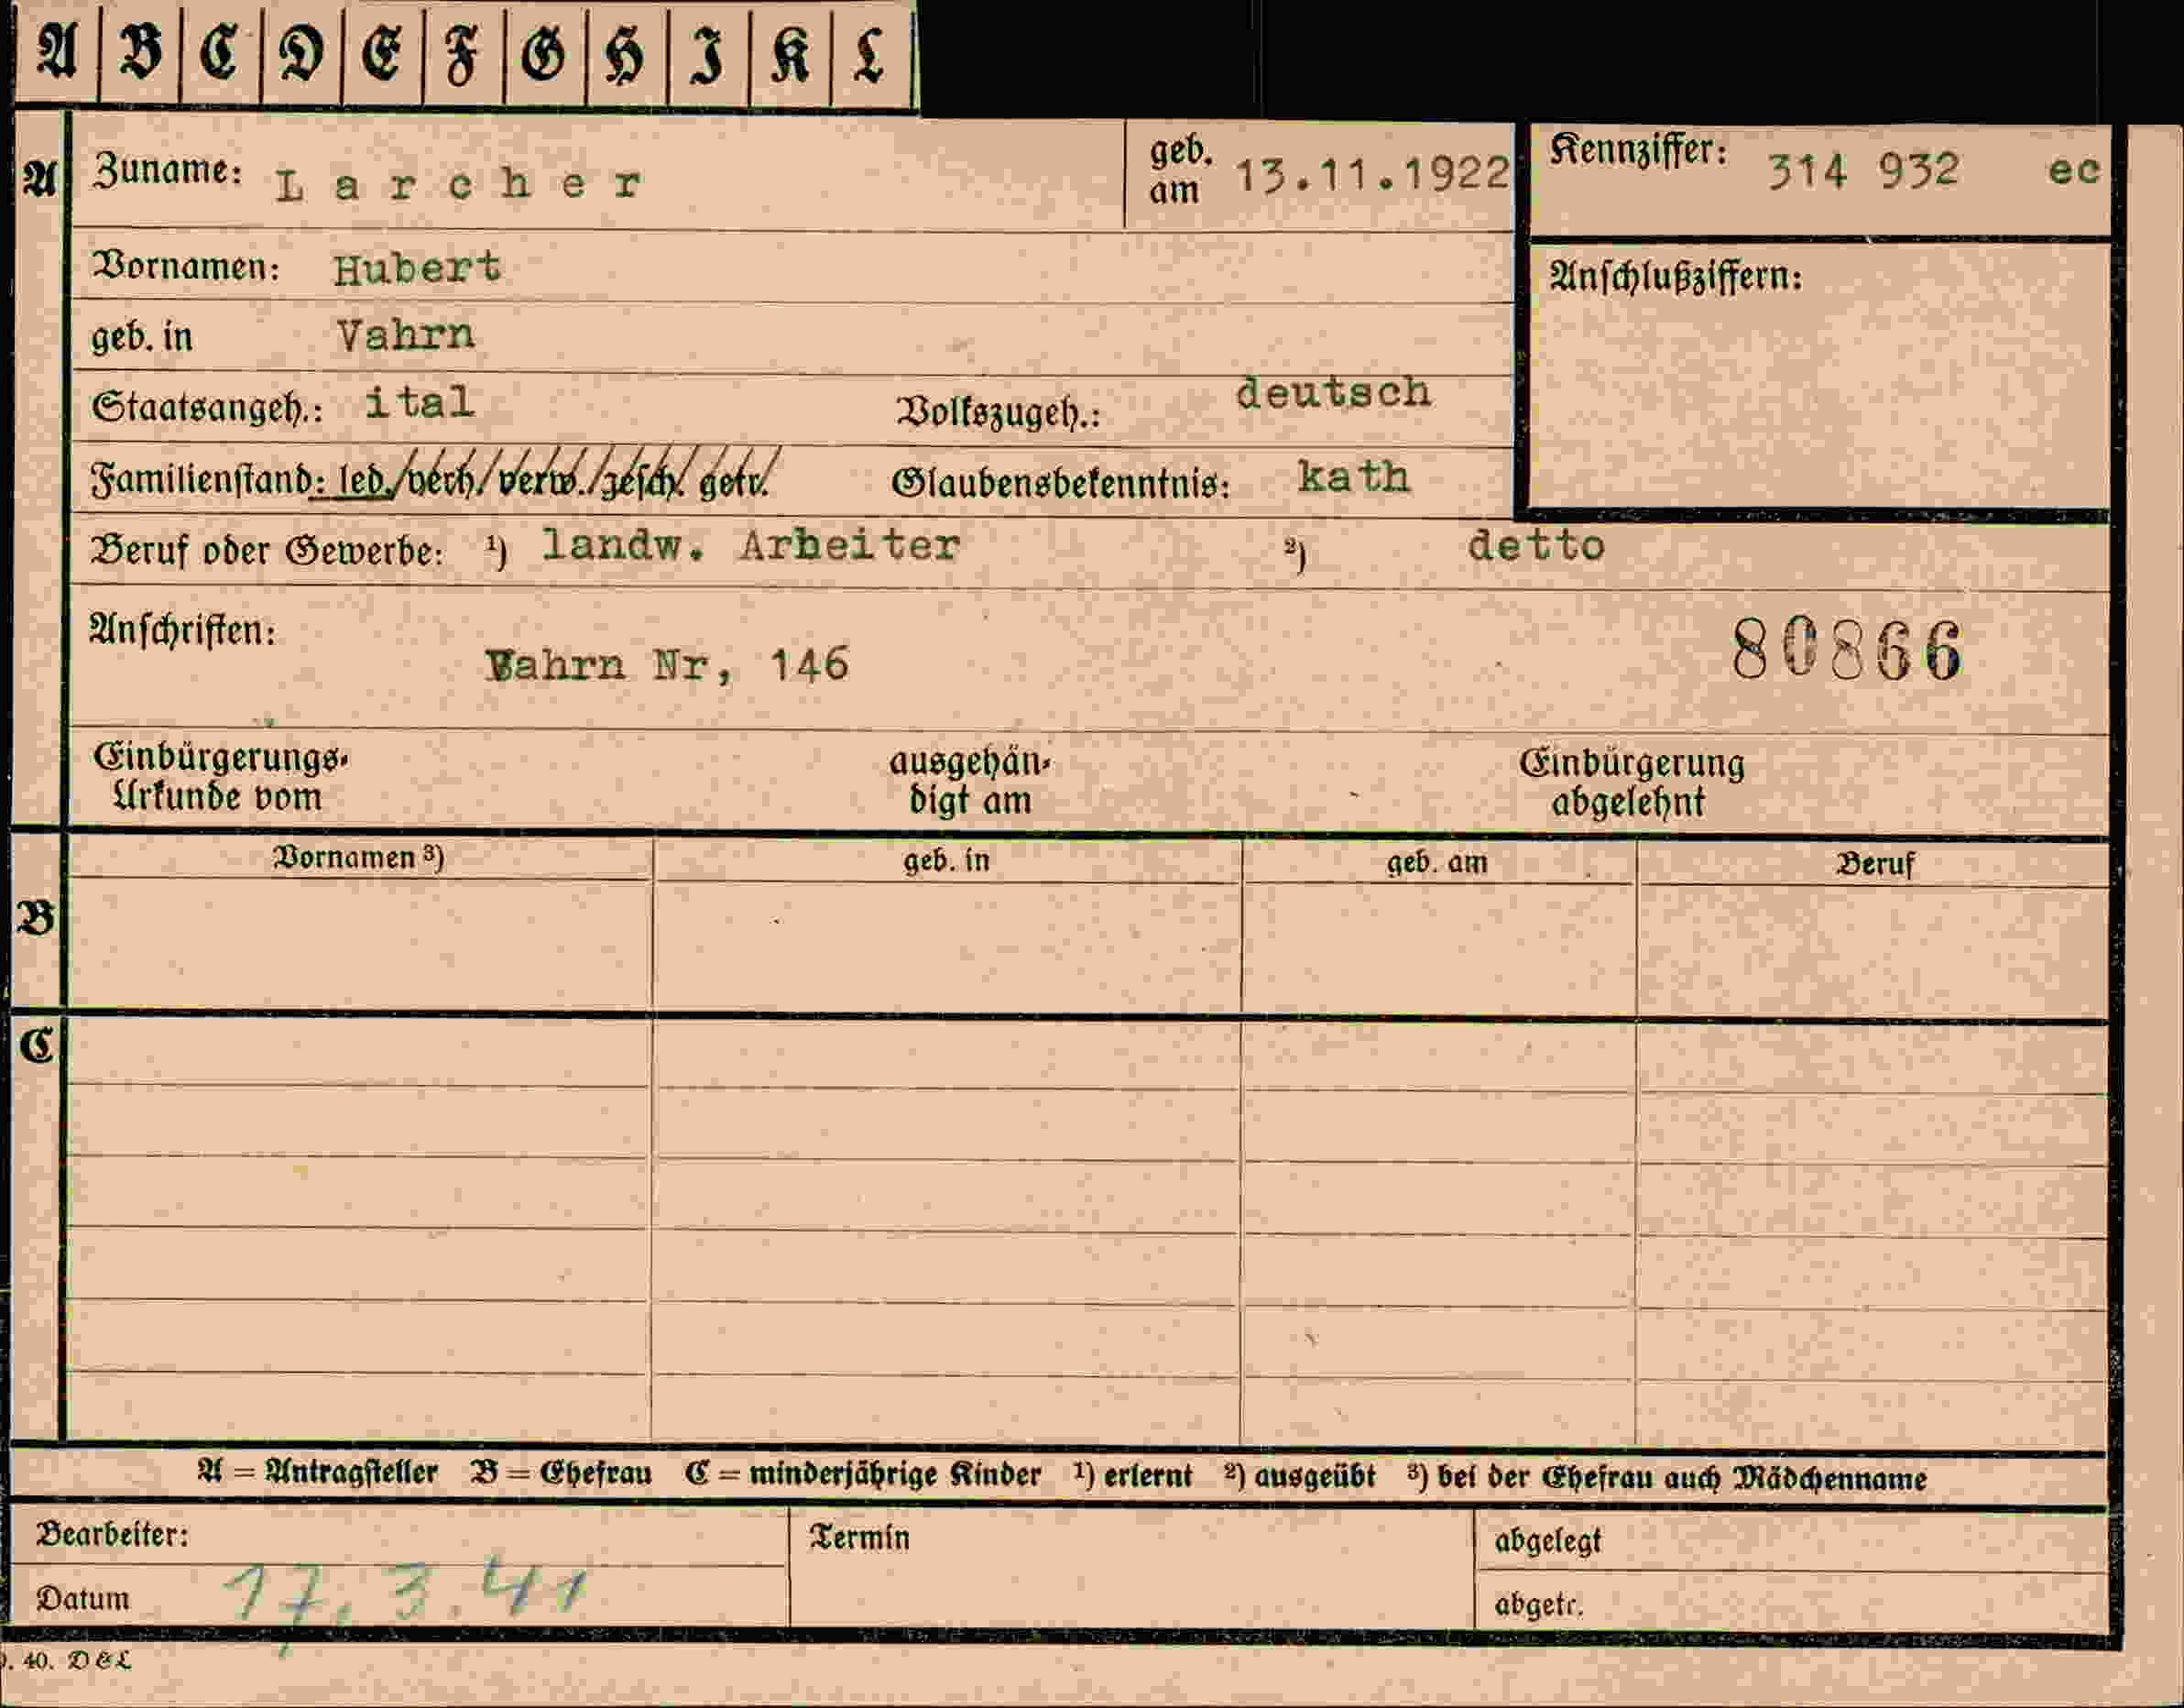 A B C D E F G H I K L
A Zuname: Larcher geb. am 13.11.1922 Kennziffer: 314 932 ec
Vornamen: Hubert
Anschlußziffern:
geb. in Vahrn
Staatsangeh.: ital Volkszugeh.: deutsch
Familienstand: led./verh/verw./gesch/getr. Glaubensbekenntnis: kath
Beruf oder Gewerbe: ¹) landw. Arbeiter ²) detto
Anschriften:
Vahrn Nr, 146 80866
Einbürgerungs- ausgehän- Einbürgerung
Urkunde vom digt am abgelehnt
Vornamen ³) geb. in geb. am Beruf
B
C
A = Antragsteller B = Ehefrau C = minderjährige Kinder ¹) erlernt ²) ausgeübt ³) bei der Ehefrau auch Mädchenname
Bearbeiter: Termin abgelegt
Datum 17.3.41 abgetr.
. 40. D&L